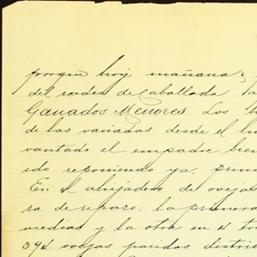 porque hoy, mañana y
del rodeo de caballada
Ganados Menores. Los
de las vacadas desde el
vantado el empadre bien
ido reponiendo ya,
En el ahijadero de ovejas
ra de reparo: la primera
medias y la otra en 4
394 ovejas paridas